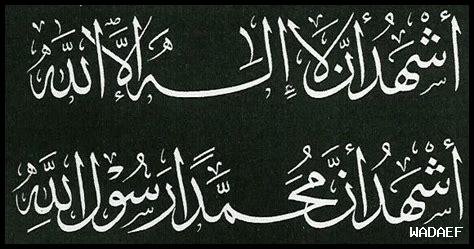 أشهد أن لا إله إلا الله
أشهد أن محمدا رسول الله
WADAEF